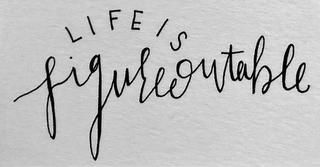 LIFE IS
figureoutable